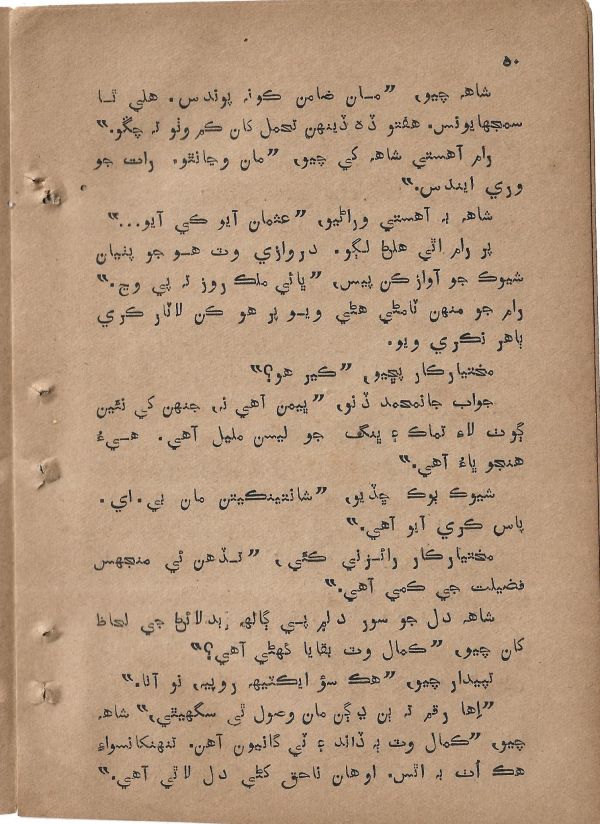 ۵۰
شاهہ چيو, ”مـان ضامن ڪونہ پوندس. هلي ٿـا
سمجهايونس. هفتو ڏهہ ڏينهن تحمل کان ڪم وٺو تہ چڱو.“
رام آهستي شاهہ کي چيو, ”مان وڃانٿو. رات جو
وري ايندس.“
شاهہ بہ آهستي وراڻيو, ”عثمان آيو ڪي آيو...“
پر رام اٿي هلڻ لڳو. دروازي وٽ هـو جو پٺيان
شيوڪ جو آواز ڪن پيس, ”ڀائي ملڪ روز تہ پي وڃ.“
رام جو منهن ٽامڻي هڻي ويـو پر هو ڪن لاٽار ڪري
ٻاهر نڪري ويو.
مختيارڪار پڇيو, ”ڪير هو؟“
جواب جانمحمد ڏنو, ”پيمن آهي نہ, جنهن کي نئين
ڳوٺ لاءِ تماڪ ۽ ڀنگ جو ليسن مليل آهي. هـيءُ
هنجو ڀاءُ آهي.“
شيوڪ ٽوڪ ڇڏيو, ”شانتينڪيتن مان بي. اي.
پاس ڪري آيو آهي.“
مختيارڪار رائـزني ڪئي, ”تـڏهن ئي منجهس
فضيلت جي ڪمي آهي.“
شاهہ دل جو سور دلم پـي ڳالهہ بدلائڻ جي لحاظ
کان چيو, ”ڪمال وٽ بقايا ڪهڻي آهي؟“
تپيدار چيو, ”هڪ سؤ ايڪٽيهہ روپيہ نو آنا.“
”اِها رقم تہ ٻن ڍڳن مان وصول ٿي سگهيٿي,“ شاهہ
چيو, ”ڪمال وٽ ٻہ ڏاند ۽ ٽي ڳائيون آهن. تنهنکانسواءِ
هڪ اُٺ بہ اٿس. اوهان ناحق کڻي دل لاٿي آهي.“